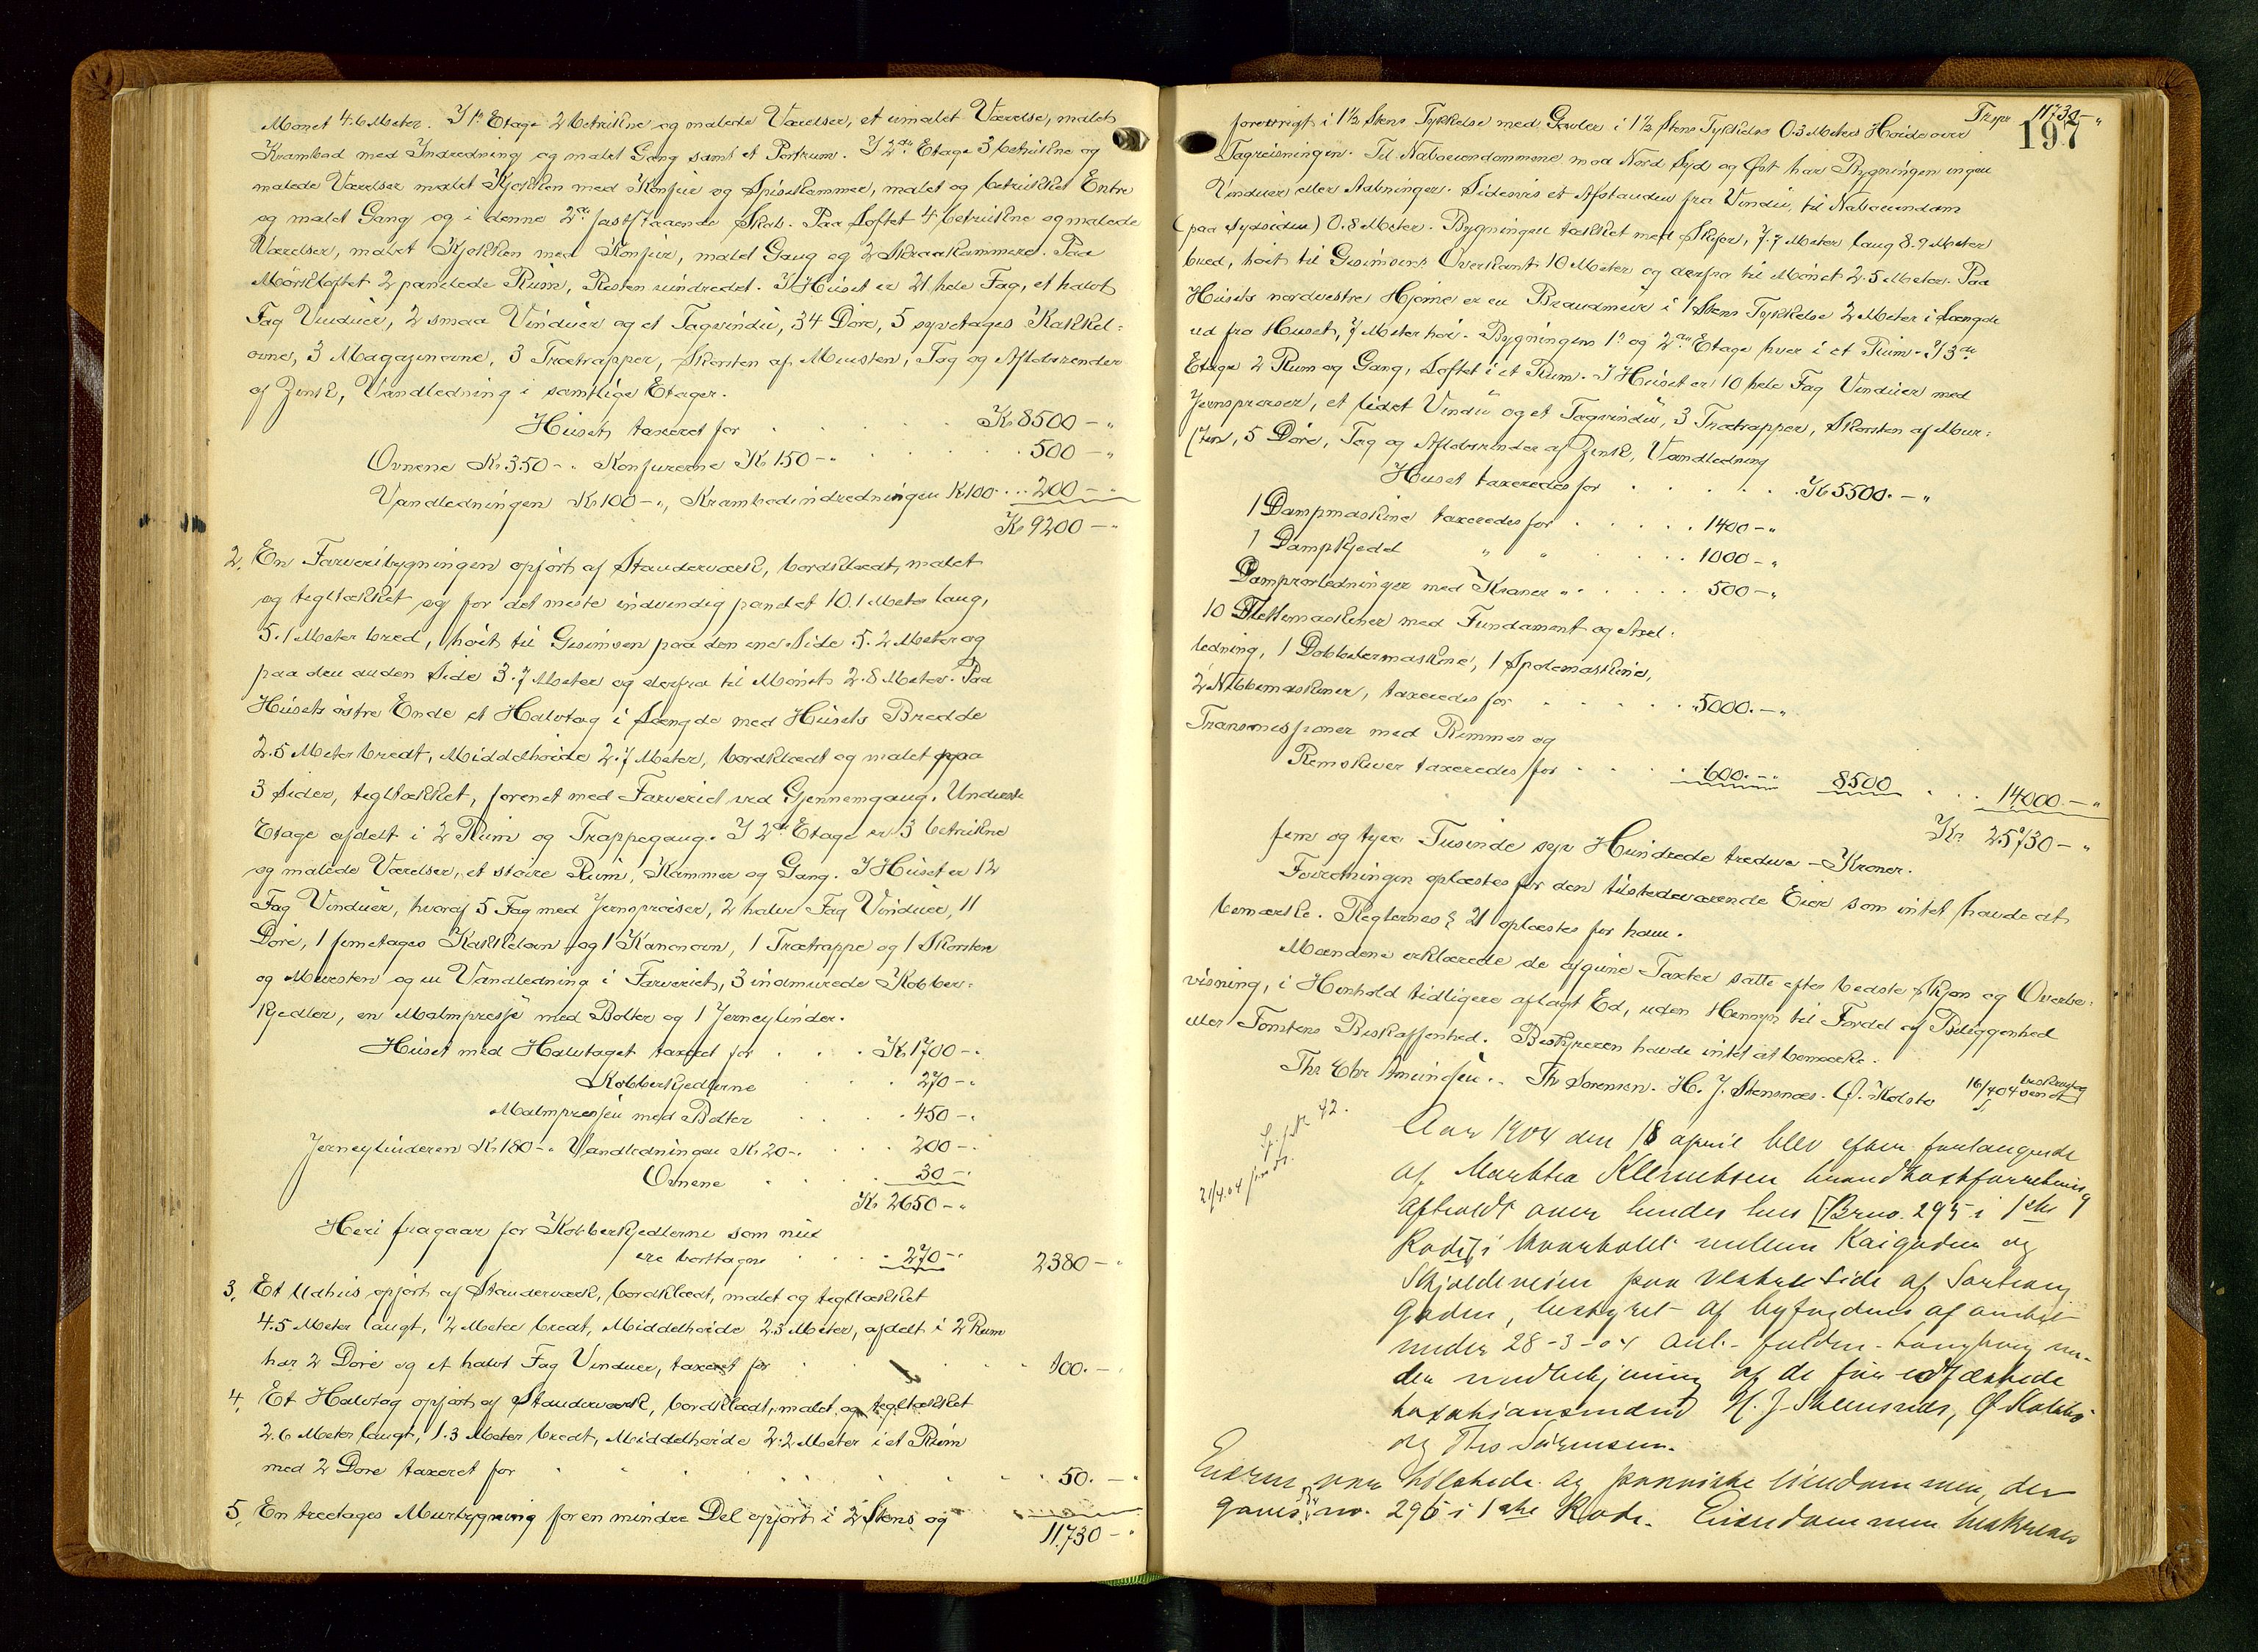 Mönet 4.6 Meter. I 1ste Etage 2 betrukne og malede Værelser, et umalet Værelse, malet
Krambod med Indredning og malet Gang samt et Portrum. I 2den Etage 3 betrukne og
malede Værelser malet Kjøkken med Konfur og Spisekammer, malet og betrukket Entre
og malet Gang og i denne 2de fastst staaende Skab. Paa Loftet 4 betrukne og malede
Værelser, malet Kjøkken med Konfur, malet Gang og 2 Skraakammere. Paa
Mørkloftet 2 panelede Rum, Resten uindredet. I Huset er 21 hele Fag, et halvt
Fag Vinduer, 2 smaa Vinduer og et Tagvindu, 34 Döre, 5 syvetages Kakkel:
ovne, 3 Magazinovne, 3 Trætrapper, Skorsten af Mursten, Tag og Afløbsrender
af Zink, Vandledning i samtlige Etager.
Huset taxeret for . . . . . Kr 8500 - "
Ovnene Kr 350 - " Konfurerne Kr 150 - " . . . . . 500 - "
Vandledningen Kr 100 - ", Krambodindredningen Kr 100 . . . 200 - "
Kr 9200 - "
2. En Farveribygningen opført af Stauderværk, bordklædt, malet
og tegltækket og for det meste indvendig panelet 10.1 Meter lang,
5.1 Meter bred, höit til Gesimsen paa den ene Side 5.2 Meter og
paa den anden Side 3.7 Meter og derfra til Mönet 2.8 Meter. Paa
Husets östre Ende et Halvtag i Længde med Husets Bredde
2.5 Meter bredt, Middelhøide 2.7 Meter, bordklædt og malet paa
3 Sider, tegltækket, forenet med Farveriet ved Gjennemgang. Underste
Etage afdelt i 2 Rum og Trappegang. I 2den Etage er 3 betrukne
og malede Værelser, et större Rum, Kammer og Gang. I Huset er 12
Fag Vinduer, hvoraf 5 Fag med Jernsprosser, 2 halve Fag Vinduer, 11
Döre, 1 femetages Kakkelovn og 1 Kanonovn, 1 Trætrappe og 1 Skorsten
og Mursten og en Vandledning i Farveriet, 3 indmurede Kobber:
kjedler, en Malmpresse med Bolter og 1 Jerncylinder.
Huset med Halvtaget taxeret for . . . Kr 1700 - "
Kobberkjedlerne . . . 270 - "
Malmpressen med Bolter . . . 450 - "
Jerncylinderen Kr 180 - " Vandledningen Kr 20 - " . . . 200 - "
Ovnene . . . 30 - "
Kr 2650 - "
Heri fragaar for Kobberkjedlerne som nu
ere borttagne . . . 270 - " 2380 - "
3. Et Udhus opført af Stauderværk, bordklædt, malet og tegltækket
4.5 Meter langt, 2 Meter bredt, Middelhøide 2.3 Meter, afdelt i 2 Rum
har 2 Döre og et halvt Fag Vinduer, taxeret for . . . 100. - "
4. Et Halvtag opført af Stauderværk, bordklædt, malet og tegltækket
2.6 Meter langt, 1.3 Meter bredt, Middelhøide 2.2 Meter i et Rum
med 2 Döre taxeret for . . . 50. - "
5. En treetages Murbygning for en mindre Del opført i 2 Stens og
11730 - "
Trspr 11730 - "
197
forövrigt i 1½ Stens Tykkelse med Gavler i 1½ Stens Tykkelse 0.3 Meters Høide over
Tagreisningen. Til Naboeiendommene mod Nord Syd og Øst har Bygningen ingen
Vinduer eller Aabninger. Sidesvis et Afstanden fra Vindu til Naboeiendom
(paa Sydsiden) 0.8 Meter. Bygningen tækket med Skifer, 7.7 Meter lang 8.9 Meter
bred, höit til Gesimsens Overkant 10 Meter og derfra til Mönet 2.5 Meter. Paa
Husets nordvestre Hjørne er en Brandmur i 1 Stens Tykkelse 2 Meter i Længde
ud fra Huset, 7 Meter höi. Bygningens 1ste og 2den Etage hver i et Rum. I 3die
Etage 2 Rum og Gang, Loftet i et Rum. I Huset er 10 hele Fag Vinduer med
Jernsprosser, et lidet Vindu og et Tagvindu, 3 Trætrapper, Skorsten af Mur:
sten, 5 Döre, Tag og Afløbsrender af Zink, Vandledning
Huset taxeredes for . . . . . Kr 5500. - "
1 Dampmaskine taxeredes for . . . . 1400 - "
1 Dampkjedel " " . . . 1000 - "
Damprørledninger med Kraner " " . . . . 500 - "
10 Flettemaskiner med Fundament og Axel:
ledning, 1 Dobblermaskine, 1 Spolemaskine,
2 Nibbemaskiner, taxeredes for . . . . 5000. - "
Transmisjioner med Remmer og
Remskiver taxeredes for . . . 600. - " 8500 . . . 14000. - "
Kr. 25730 - "
fem og tyve Tusinde syv Hundrede tredive - Kroner.
Forretningen oplæstes for den tilstedeværende Eier som intet havde at
bemærke. Reglernes § 21 oplæstes for ham.
Mændene erklærede de afgivne Taxter satte efter bedste Skjøn og Overbe:
visning, i Henhold tidligere aflagt Ed, uden Hensyn til Fordel af Beliggenhed
eller Tomtens Beskaffenhed. Bestyreren havde intet at bemærke.
Ths Chr Amundsen. Th Sørensen. H. J. Stensnæs. Ø. Kolstø 16/4 04 sendt
21/4.04
Aar 1904 den 18 april blev efter forlangende
af Marthea Klemetsen brandtaxtforretning
afholdt over hendes hus [Brno. 295 i 1ste
Rode] i kvartalet mellem Kaigaden og
Skjoldeveien paa vestre side af Sørhaug
gaden, bestyret af byfogdens af amtet
under 28-3-04 fuldm.
den medbetjening af de før edfæstede
taxationsmænd H. J. Stensnæs, Ø Kolstø
og Ths Sørensen.
Eieren var tilstede og paaviste eiendommen, der
gaves no. 296 i 1ste Rode. Eiendommen beskrives